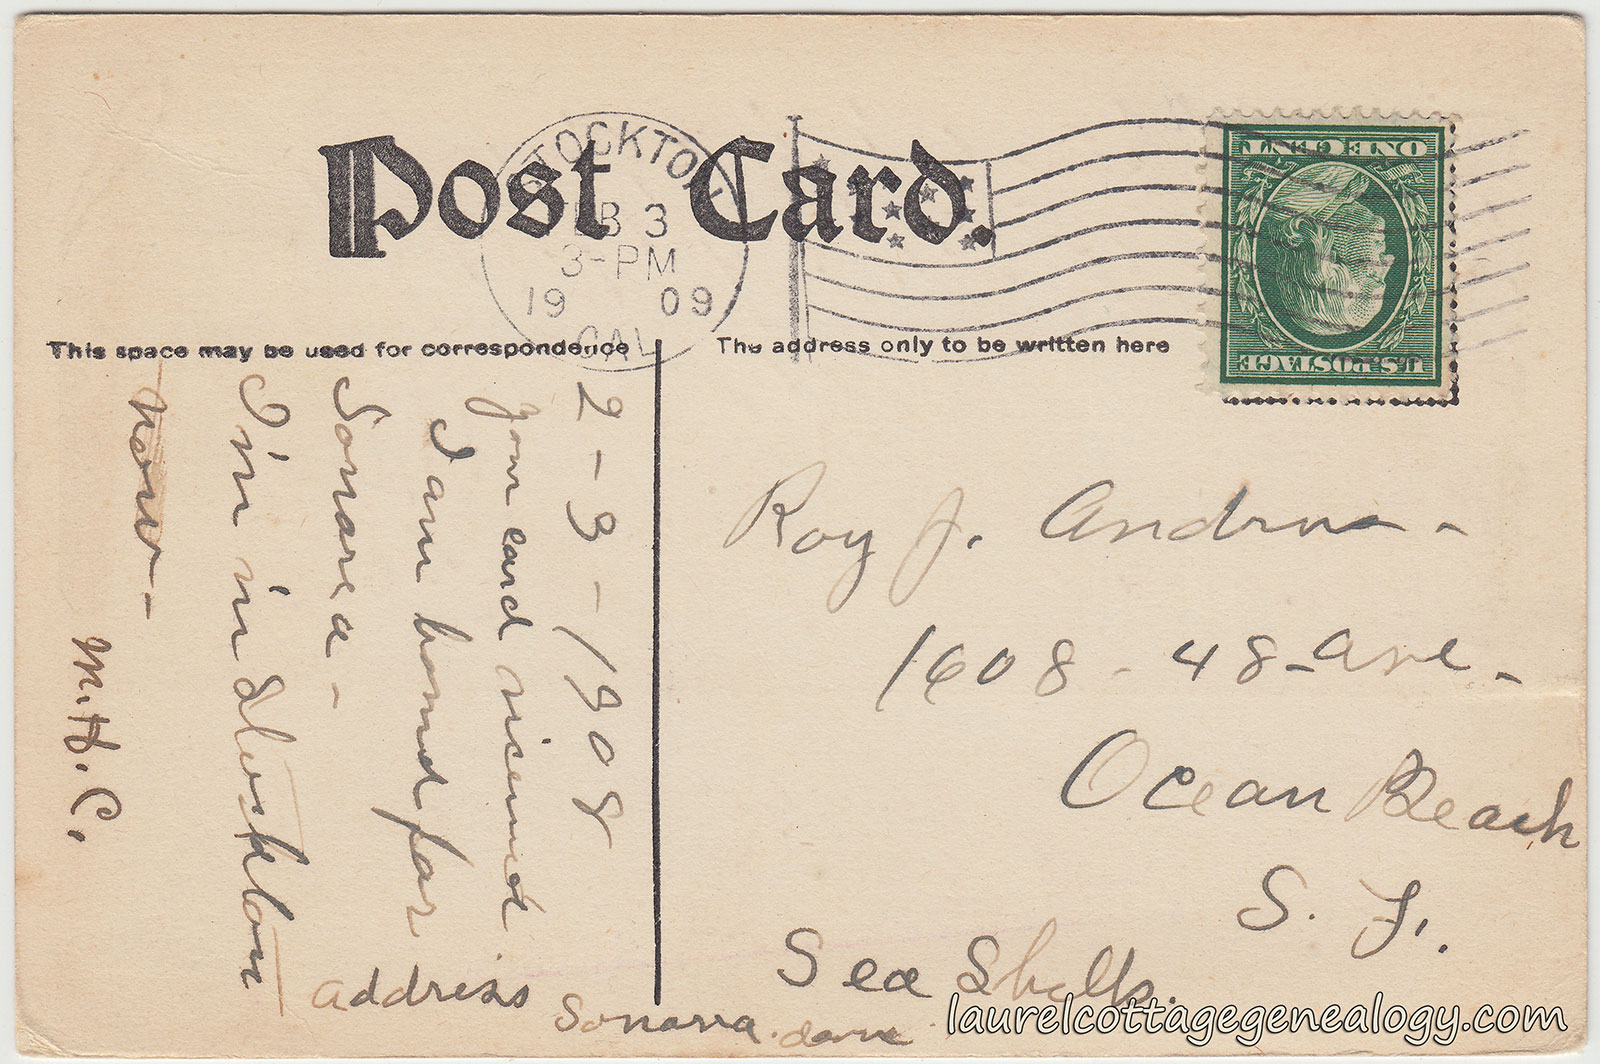 Post Card.
STOCKTON
EB 3
3-PM
19 09
CAL
ONE CENT
U.S. POSTAGE
This space may be used for correspondence
The address only to be written here
2-3-1908
your card received
I am bound for
Sonarea-
I'm in Stockton
now-
M.H.C.
address
Sonarra.
Roy J. Andrus-
1608-48-ave-
Ocean Beach
S. F.
Sea Shells.
laurelcottagegenealogy.com